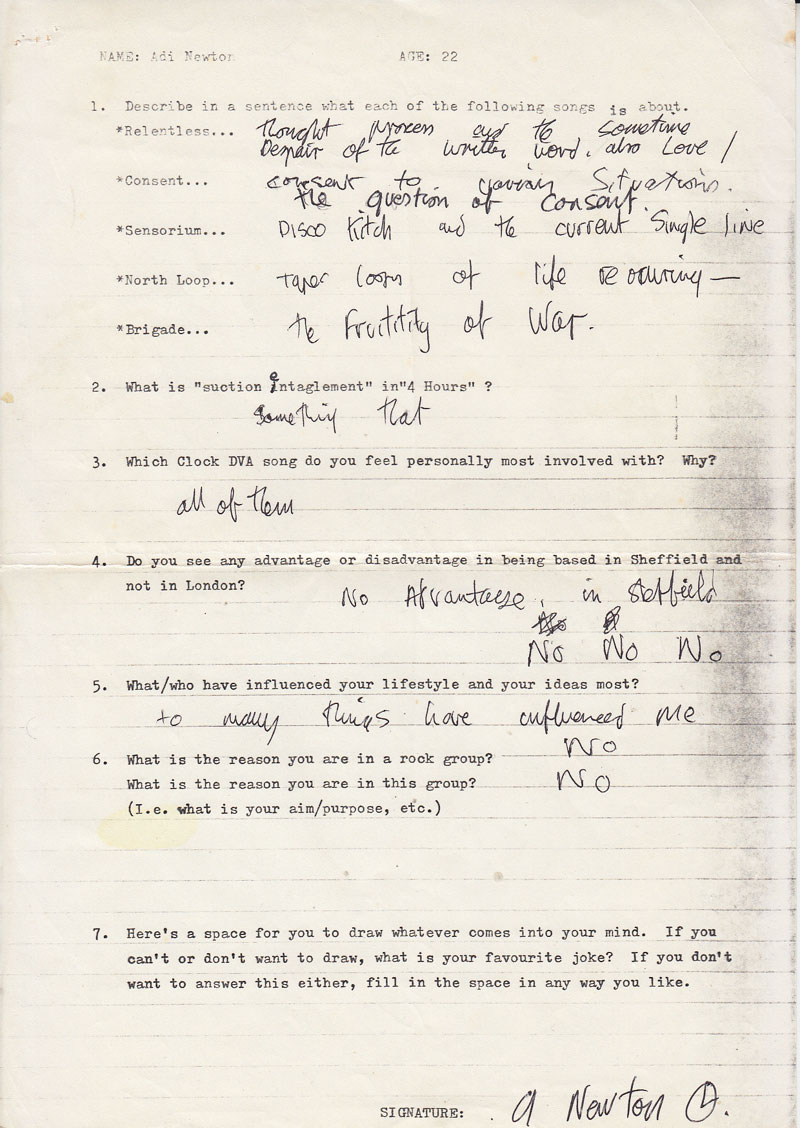 NAME: Adi Newton AGE: 22
1. Describe in a sentence what each of the following songs is about.
*Relentless... thought process and the sometime
Despair of the written word. also Love /
*Consent... consent to Situations.
the question of Consent.
*Sensorium... DISCO Kitch and the current Single line
*North Loop... tape loops of life reocuring —
*Brigade... the Fruitity of War.
2. What is "suction entaglement" in"4 Hours" ?
something that
3. Which Clock DVA song do you feel personally most involved with? Why?
all of them
4. Do you see any advantage or disadvantage in being based in Sheffield and
not in London?
No Advantaege. in Sheffield
No No No
5. What/who have influenced your lifestyle and your ideas most?
to many things have influenced me
6. What is the reason you are in a rock group? No
What is the reason you are in this group? No
(I.e. what is your aim/purpose, etc.)
7. Here's a space for you to draw whatever comes into your mind. If you
can't or don't want to draw, what is your favourite joke? If you don't
want to answer this either, fill in the space in any way you like.
SIGNATURE: A Newton